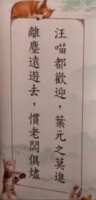 汪喵都歡迎，葉元之莫進
離塵遠遊去，慣老闆俱爐